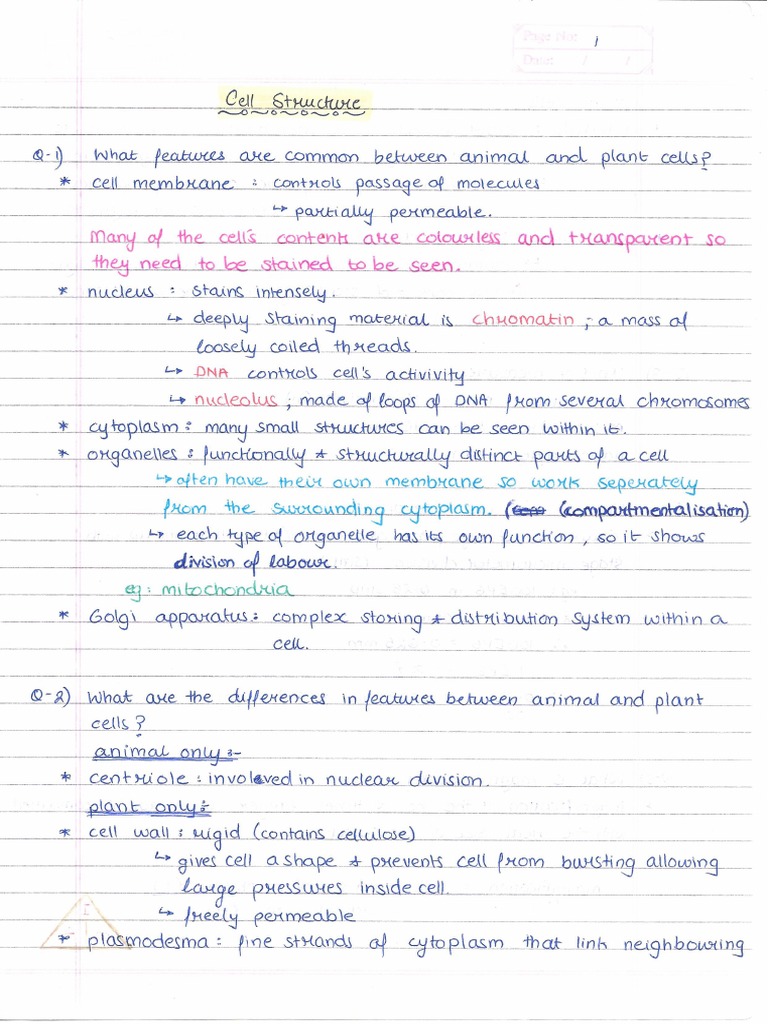 Page No: 1
Date: / /
Cell Structure
Q-1) What features are common between animal and plant cells?
* cell membrane : controls passage of molecules
↳ partially permeable.
Many of the cell's contents are colourless and transparent so
they need to be stained to be seen.
* nucleus : stains intensely.
↳ deeply staining material is chromatin ; a mass of
loosely coiled threads.
↳ DNA controls cell's activivity
↳ nucleolus ; made of loops of DNA from several chromosomes
* cytoplasm : many small structures can be seen within it.
* organelles : functionally & structurally distinct parts of a cell
↳ often have their own membrane so work seperately
from the surrounding cytoplasm. (compartmentalisation)
↳ each type of organelle has its own function, so it shows
division of labour.
eg: mitochondria
* Golgi apparatus : complex storing & distribution system within a
cell.
Q-2) What are the differences in features between animal and plant
cells?
animal only :-
* centriole : involved in nuclear division.
plant only :-
* cell wall : rigid (contains cellulose)
↳ gives cell a shape & prevents cell from bursting allowing
large pressures inside cell.
↳ freely permeable
* plasmodesma : fine strands of cytoplasm that link neighbouring